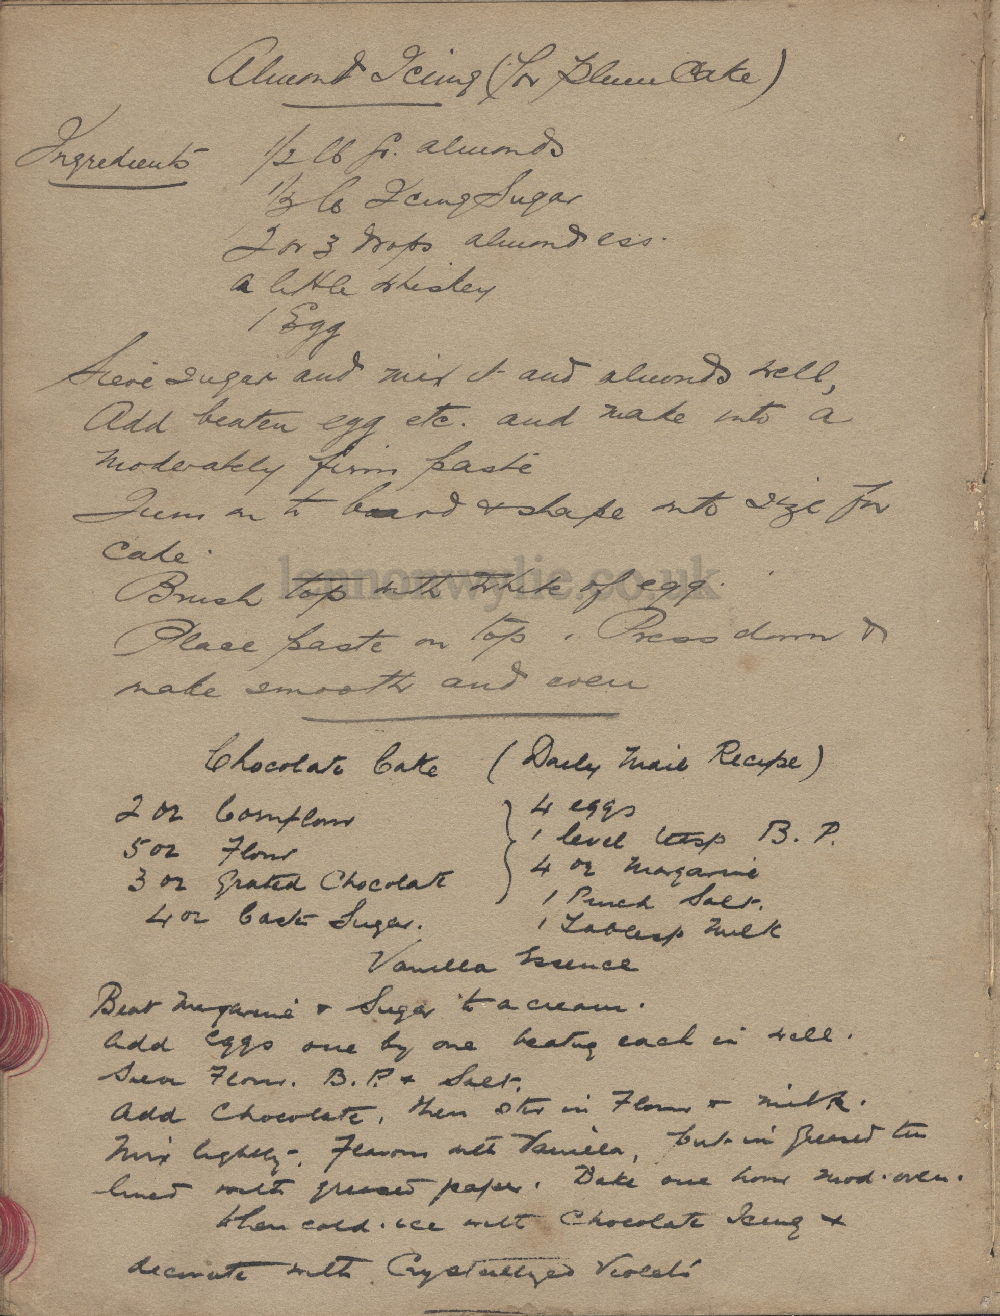 Almond Icing (for Plum Cake)
Ingredients 1/2 lb gr. almonds
1/2 lb Icing Sugar
2 or 3 drops almond ess.
a little whiskey
1 Egg
Sieve sugar and mix it and almonds well,
Add beaten egg etc. and make into a
moderately firm paste
Turn on to board & shape into size for
cake.
Brush top with white of egg.
lennonwylie.co.uk
Place paste on top. Press down &
make smooth and even
Chocolate Cake (Daily Mail Recipe)
2 oz Cornflour
5 oz Flour
3 oz Grated Chocolate
4 oz Cast Sugar.
4 eggs
1 level teasp B. P.
4 oz Margarine
1 Pinch Salt.
1 Tablesp Milk
Vanilla Essence
Beat Margarine & Sugar to a cream.
Add eggs one by one beating each in well.
Sieve Flour. B.P. & Salt.
Add Chocolate, then stir in Flour & milk.
Mix lightly, Flavour with Vanilla, put in greased tin
lined with greased paper. Bake one hour mod. oven.
When cold. ice with Chocolate Icing &
decorate with Crystallized Violets